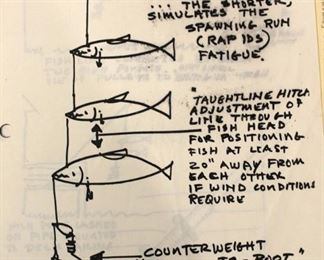 ... THE SHORTER,
SIMULATES THE
SPAWNING RUN
(RAPIDS)
FATIGUE.
"TAUGHTLINE HITCH
ADJUSTMENT OF
LINE THROUGH
FISH HEAD
FOR POSITIONING
FISH AT LEAST
20" AWAY FROM
EACH OTHER
IF WIND CONDITIONS
REQUIRE
COUNTERWEIGHT
"BOOT"